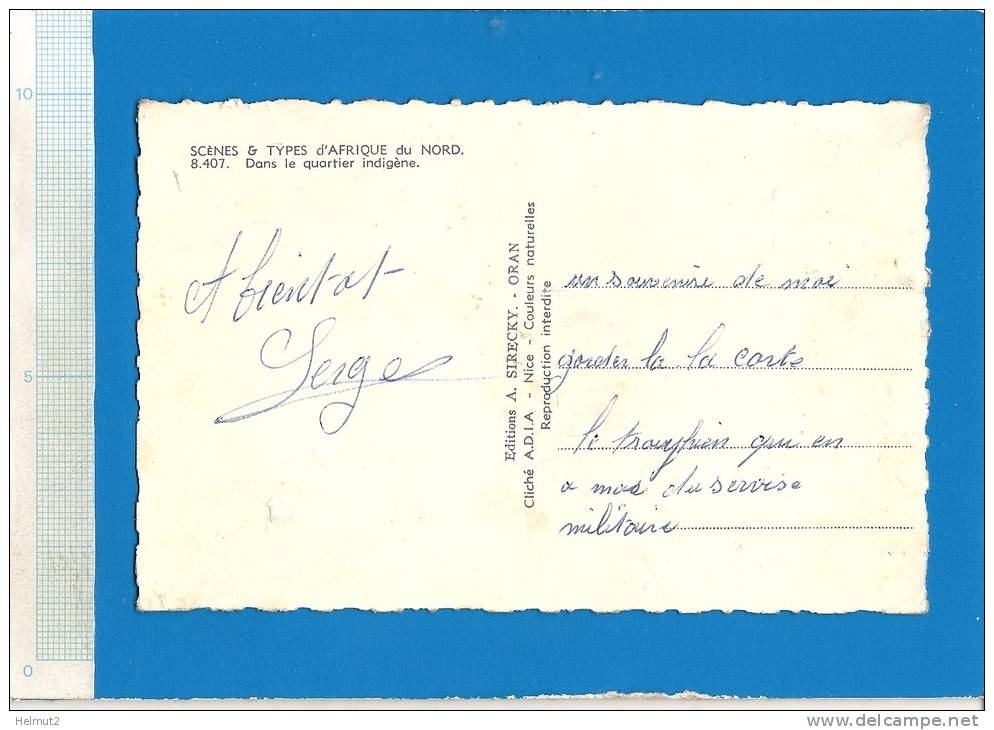 10
5
0
SCÈNES & TYPES d'AFRIQUE du NORD.
8.407. Dans le quartier indigène.
A bientot
Serge
Editions A. SIRECKY. - ORAN
Cliché A.D.I.A - Nice - Couleurs naturelles
Reproduction interdite
un souvenire de moi
garder la la carte
qui en
a moi du servise
militaire
Helmut2
www.delcampe.net